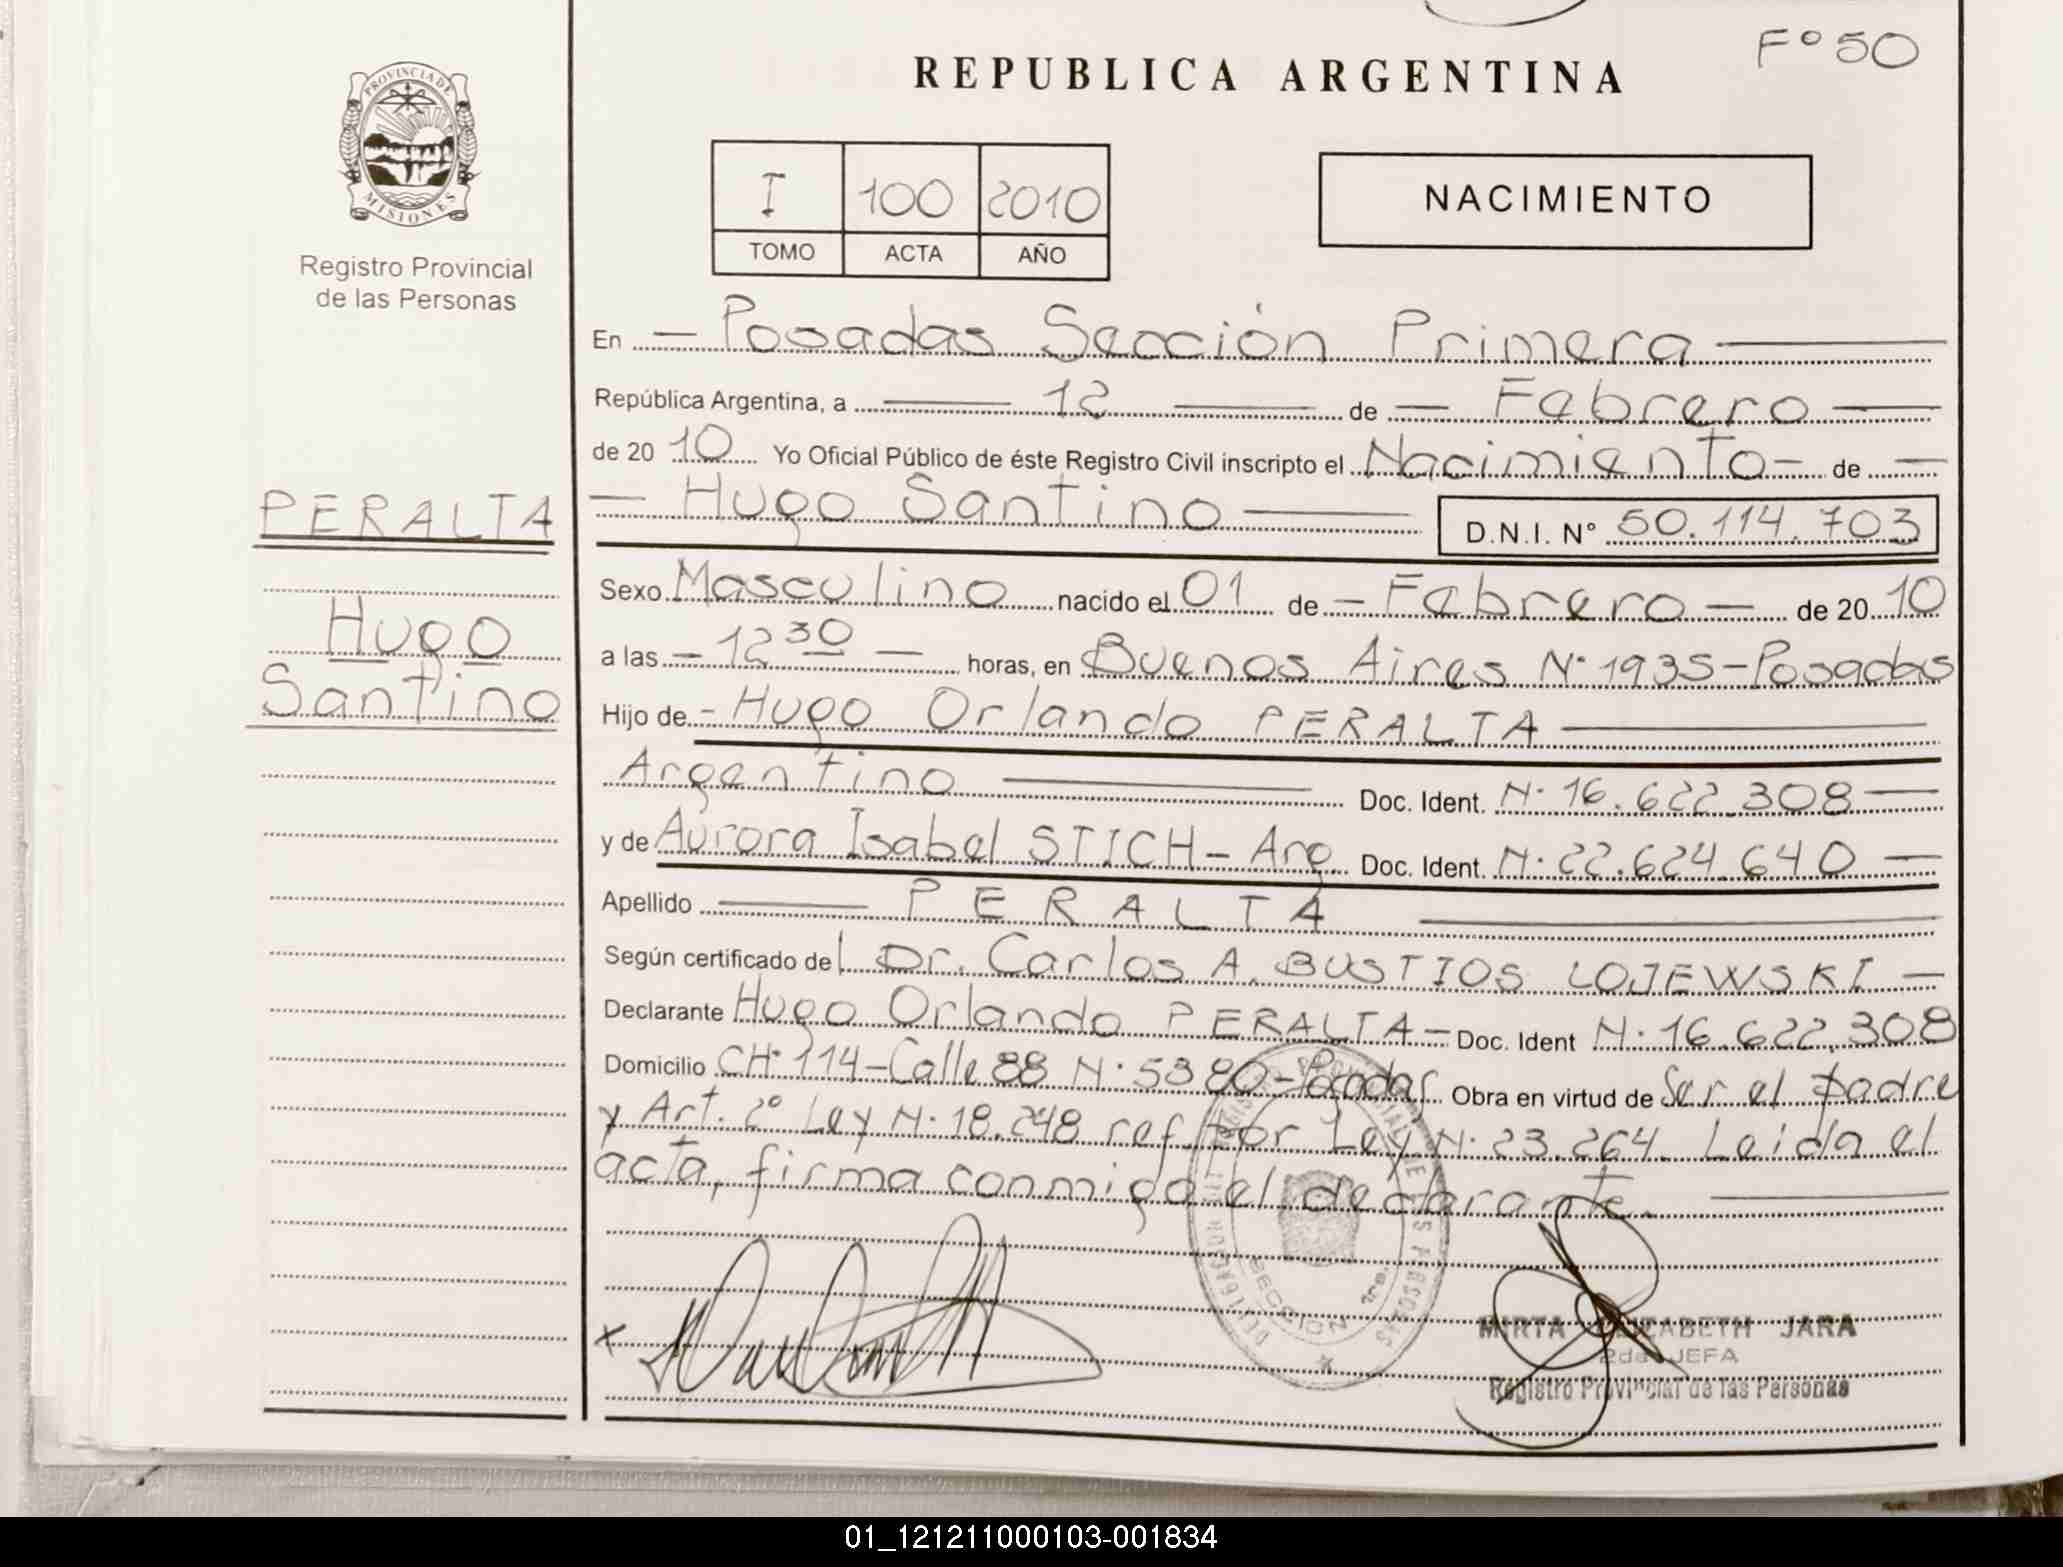 F° 50
REPUBLICA ARGENTINA
PROVINCIA DE
MISIONES
Registro Provincial
de las Personas
I 100 2010
TOMO ACTA AÑO
NACIMIENTO
En - Posadas Sección Primera
República Argentina, a 12 de - Febrero
de 20 10 Yo Oficial Público de éste Registro Civil inscripto el Nacimiento - de -
PERALTA
Hugo
Santino
- Hugo Santino D.N.I. N° 50.114.703
Sexo Masculino nacido el 01 de - Febrero - de 20 10
a las - 12 30 - horas, en Buenos Aires N° 1935 - Posadas
Hijo de - Hugo Orlando PERALTA
Argentino Doc. Ident. N° 16.622.308
y de Aurora Isabel STICH - Arg. Doc. Ident. N° 22.624.640
Apellido PERALTA
Según certificado del Dr. Carlos A. BUSTIOS LOJEWSKI -
Declarante Hugo Orlando PERALTA - Doc. Ident N° 16.622.308
Domicilio CH° 114 - Calle 88 N° 5380 - Posadas Obra en virtud de Ser el padre
y Art. 2° Ley N° 18.248 ref. por Ley N° 23.264. Leida el
acta, firma conmigo el declarante.
SECCION 1ra.
MIRTA ELIZABETH JARA
2da JEFA
Registro Provincial de las Personas
01_121211000103-001834